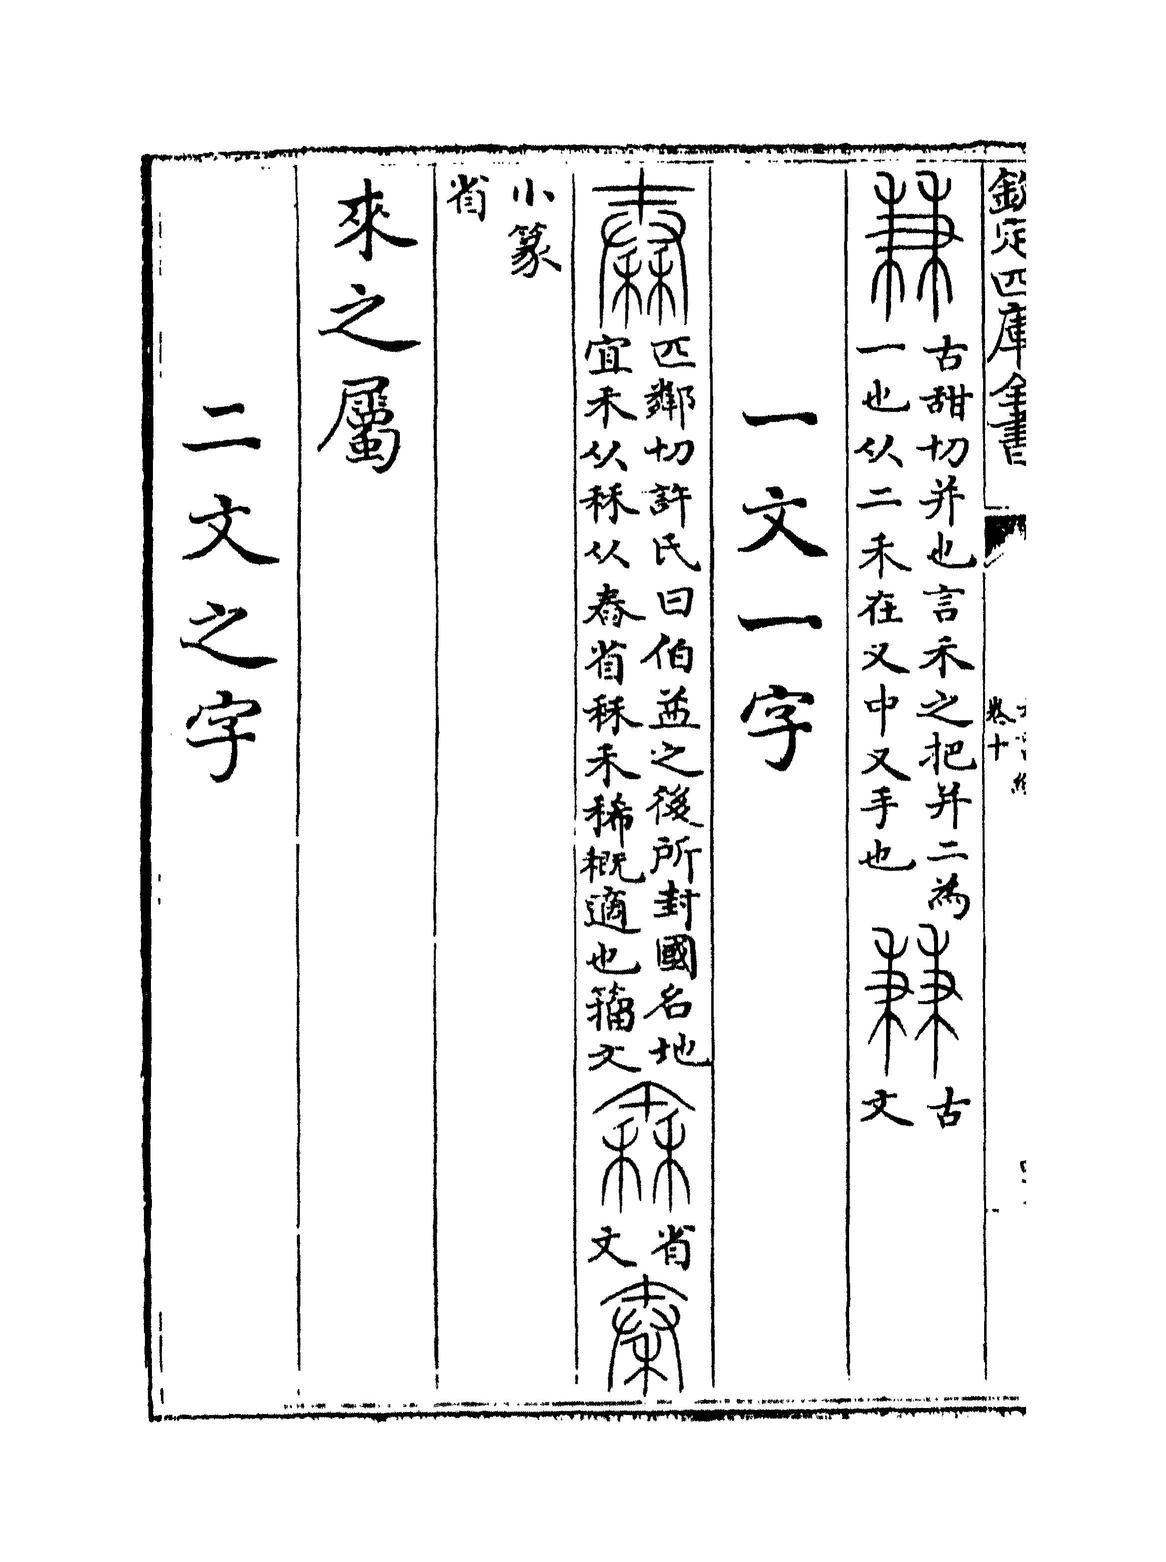 欽定四庫全書
卷十
古甜切并也言禾之把并二為
一也从二禾在又中又手也
古
文
一文一字
匹鄰切許氏曰伯益之後所封國名地
宜禾从秝从舂省秝禾稀概適也籀文
省
文
小篆
省
來之屬
二文之字